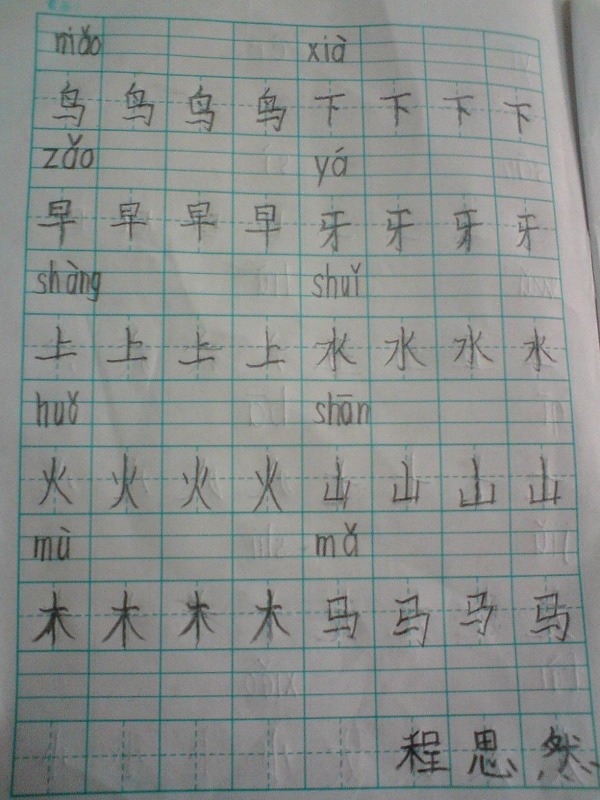 niǎo xià
鸟 鸟 鸟 鸟 下 下 下 下
zǎo yá
早 早 早 早 牙 牙 牙 牙
shàng shuǐ
上 上 上 上 水 水 水 水
huǒ shān
火 火 火 火 山 山 山 山
mù mǎ
木 木 木 木 马 马 马 马
程 思 然